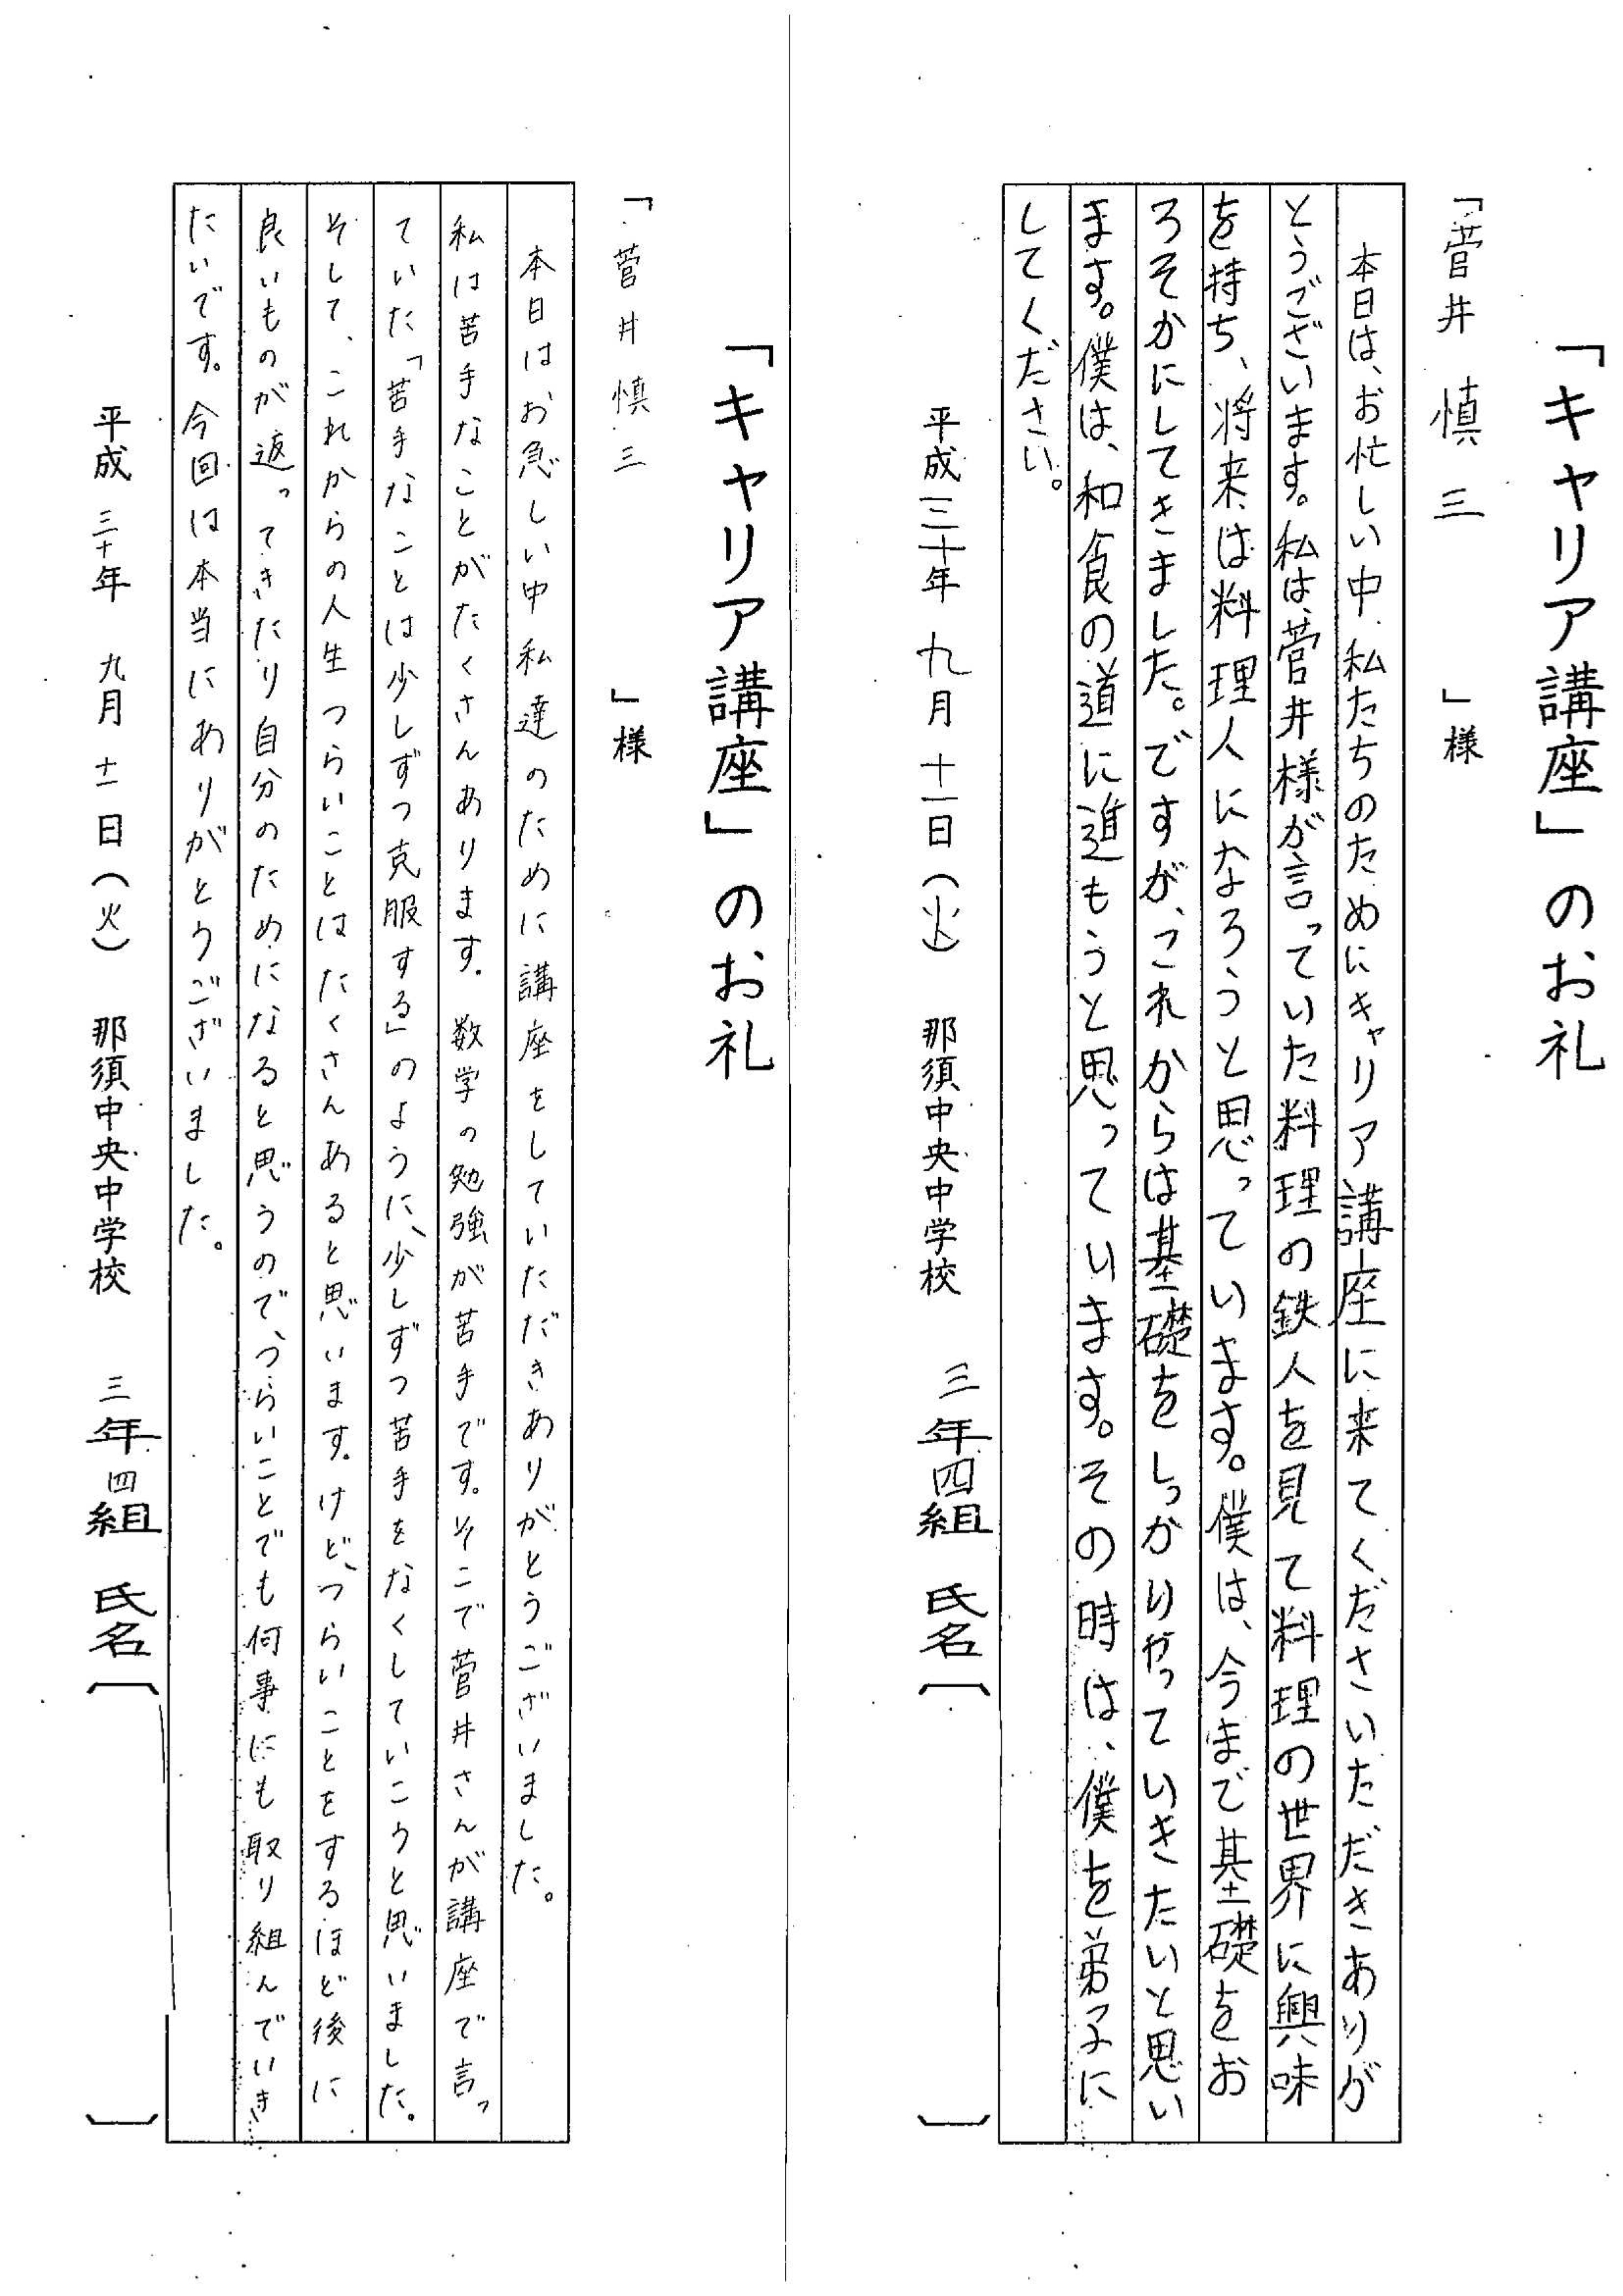 「キャリア講座」のお礼
「菅井 慎三 」様
本日は、お忙しい中、私たちのためにキャリア講座に来てくださいただきありが
とうございます。私は、菅井様が言っていた料理の鉄人を見て料理の世界に興味
を持ち、将来は料理人になろうと思っています。僕は、今まで基礎をお
ろそかにしてきました。ですが、これからは基礎をしっかりやっていきたいと思い
ます。僕は、和食の道に進もうと思っています。その時は、僕を弟子に
してください。
平成三十年 九月 十一日(火) 那須中央中学校 三年四組 氏名〔 〕
「キャリア講座」のお礼
「菅井慎三 」様
本日はお急しい中私達のために講座をしていただきありがとうございました。
私は苦手なことがたくさんあります。数学の勉強が苦手です。そこで菅井さんが講座で言っ
ていた「苦手なことは少しずつ克服する」のように、少しずつ苦手をなくしていこうと思いました。
そして、これからの人生つらいことはたくさんあると思います。けど、つらいことをするほど後に
良いものが返ってきたり自分のためになると思うので、つらいことでも何事にも取り組んでいき
たいです。今回は本当にありがとうございました。
平成 三十年 九月 十一日(火) 那須中央中学校 三年四組 氏名〔 〕